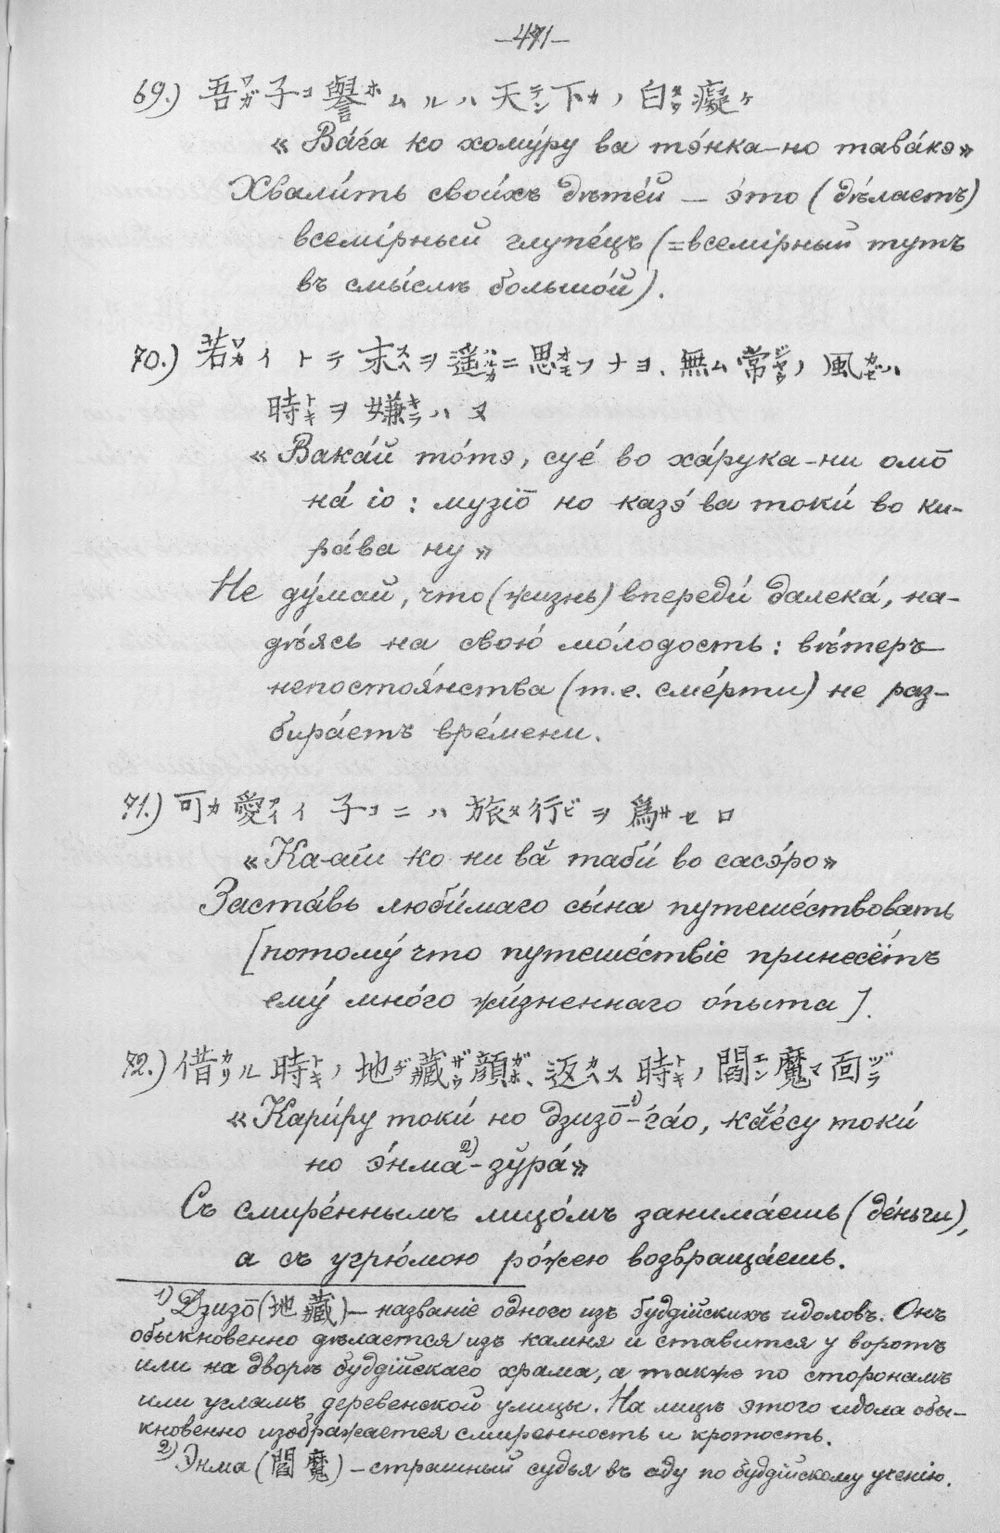 —471—
69.) 吾ワガ子コ譽ホムルハ天テン下カノ白タワ癡ケ
«Ва́га ко хому́ру ва тэ́нка-но тава́кэ»
Хвали́ть свои́хъ дѣте́й — э́то (дѣ́лаетъ)
всемі́рный глупе́цъ (=всемі́рный тутъ
въ смы́слѣ большо́й).
70.) 若ワカイトテ末スヱヲ遥ハルカニ思オモフナヨ、無ム常ジヤウノ風カゼハ
時トキヲ嫌キラハヌ
«Вака́й то́тэ, суе́ во ха́рука-ни омо̄
на́ іо: музіо̄ но казэ́ ва токи́ во ки-
ра́ва ну»
Не ду́май, что (жизнь) впереди́ далека́, на-
дѣ́ясь на свою́ мо́лодость: вѣ́теръ
непостоя́нства (т.е. сме́рти) не раз-
бира́етъ вре́мени.
71.) 可カ愛アイイ子コニハ旅タ行ビヲ爲サセロ
«Ка-ай ко ни вӑ таби́ во сасэ́ро»
Заста́вь люби́маго сы́на путеше́ствовать
[потому́ что путеше́ствіе принесётъ
ему́ мно́го жи́зненнаго о́пыта].
72.) 借カリル時トキノ地ヂ藏ザウ顔ガホ、返カヘス時トキノ閻エン魔マ面ヅラ
«Кари́ру токи́ но дзизо̄¹⁾-га́о, кӑе́су токи́
но э́нма²⁾-зӯра́»
Съ смире́ннымъ лицо́мъ занима́ешь (де́ньги),
а съ угрю́мою ро́жею возвраща́ешь.
¹⁾ Дзизо̄ (地藏) — названіе одного изъ буддійскихъ идоловъ. Онъ
обыкновенно дѣлается изъ камня и ставится у воротъ
или на дворѣ буддійскаго храма, а также по сторонамъ
или угламъ деревенской улицы. На лицѣ этого идола обы-
кновенно изображается смиренность и кротость.
²⁾ Энма (閻魔) — страшный судья въ аду по буддійскому ученію.